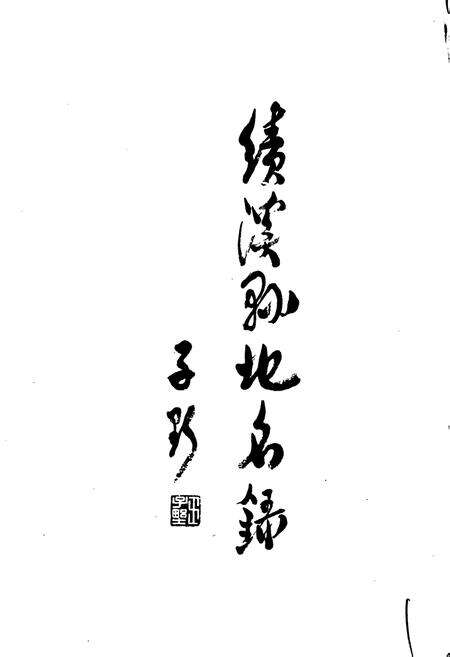 绩溪县地名录
子野